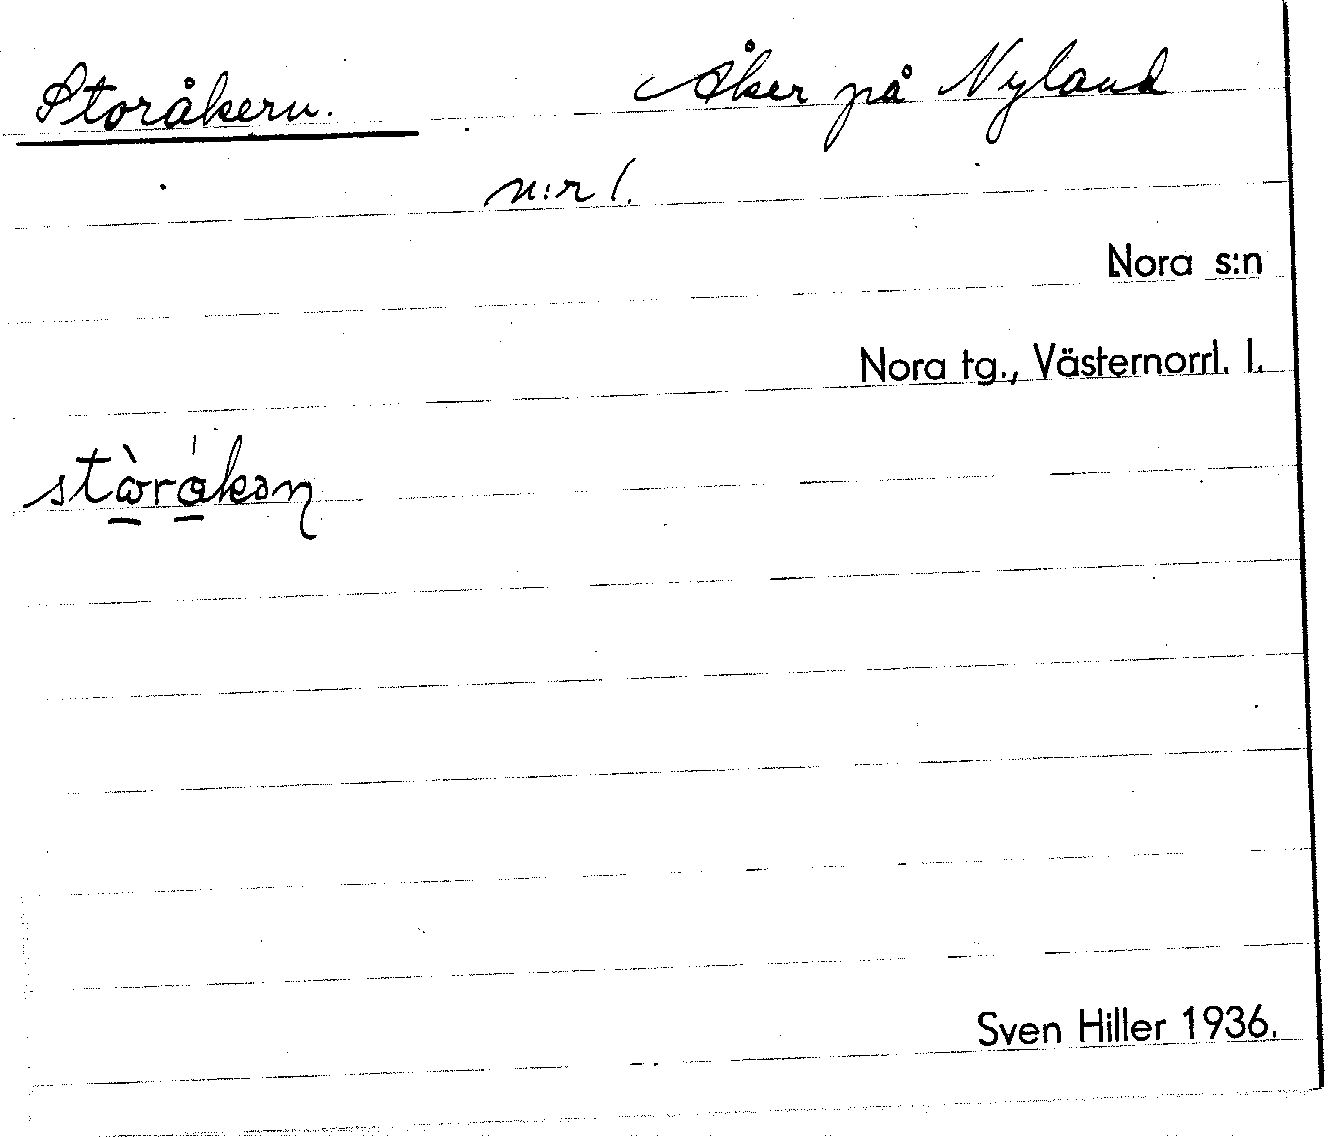 Storåkern. Åker på Nyland
n:r 1.
Nora s:n
Nora tg., Västernorrl. l.
Sven Hiller 1936.